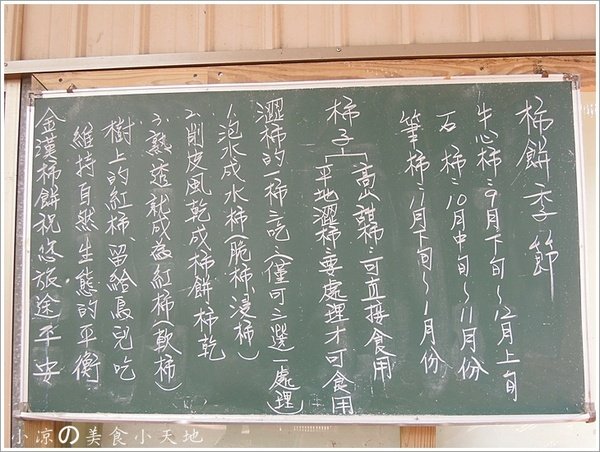 柿餅季節
牛心柿:9月下旬~12月上旬
石柿:10月中旬~11月份
筆柿:11月下旬~1月份
柿子
高山甜柿:可直接食用
平地澀柿:要處理才可食用
澀柿的一柿三吃(僅可三選一處理)
1.泡水成水柿(脆柿、浸柿)
2.削皮風乾成柿餅、柿乾
3.熟透就成為紅柿(軟柿)
樹上的紅柿、留給鳥兒吃
維持自然生態的平衡
金漢柿餅祝您旅途平安
小涼の美食小天地